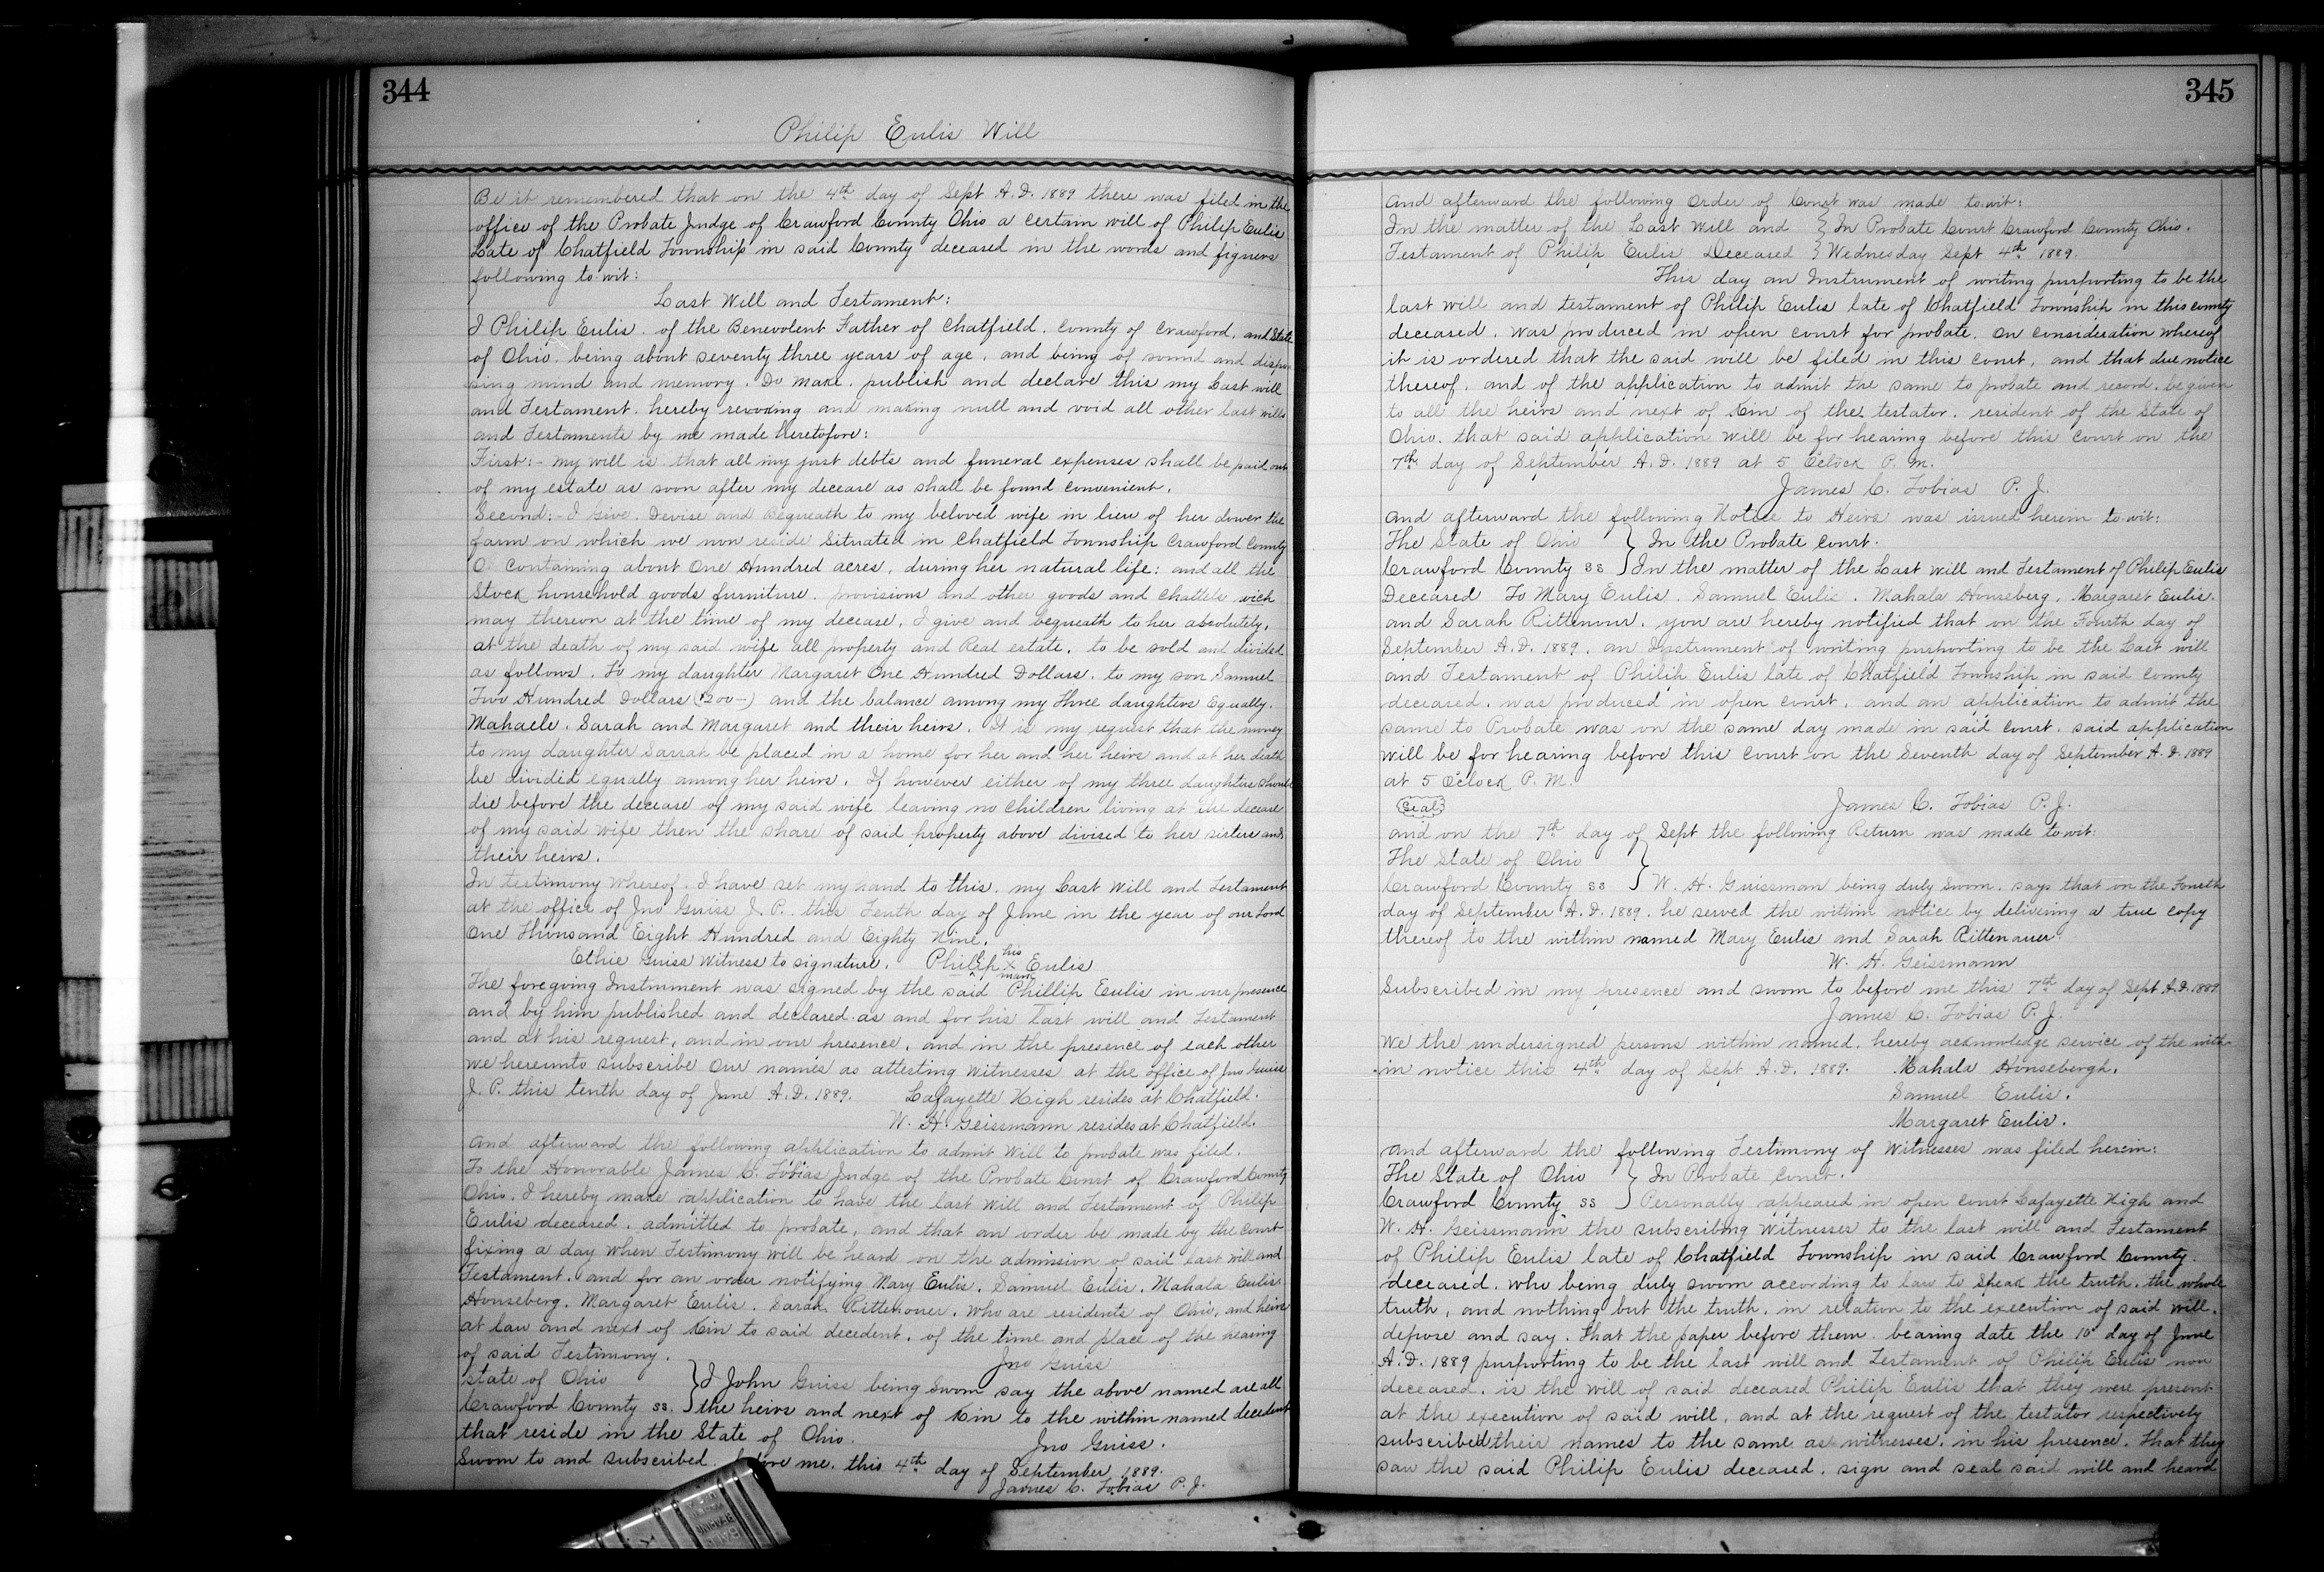 344
Philip Eulis Will
Be it remembered that on the 4th day of Sept A.D. 1889 there was filed in the
office of the Probate Judge of Crawford County Ohio a certain will of Philip Eulis
Late of Chatfield Township in said County deceased in the words and figuers
following to-wit:
Last Will and Testament:
I Philip Eulis. of the Benevolent Father of Chatfield. County of Crawford, and State
of Ohio. being about seventy three years of age. and being of sound and dispo
sing mind and memory. Do make. publish and declare this my Last will
and Testament. hereby revoking and making null and void all other last wills
and Testaments by me made heretofore:
First:- my will is that all my just debts and funeral expenses shall be paid out
of my estate as soon after my decease as shall be found convenient.
Second:- I Give. Devise and Bequeath to my beloved wife in lieu of her dower the
farm on which we now reside Situated in Chatfield Township Crawford County
O. containing about One Hundred acres, during her natural life: and all the
Stock household goods furniture. provisions and other goods and chattels wich
may thereon at the time of my decease. I give and bequeath to her absolutely.
at the death of my said wife all property and Real estate. to be sold and divided
as follows. To my daughter Margaret One Hundred Dollars. to my son Samuel
Two Hundred Dollars ($200-) and the balance among my three daughters Equally.
Mahaele. Sarah and Margaret and their heirs. It is my request that the money
to my daughter Sarrah be placed in a home for her and her heirs and at her death
be divided equally among her heirs. If however either of my three daughters should
die before the decease of my said wife leaving no children living at the decease
of my said wife then the share of said property above divised to her sisters and
their heirs.
In testimony whereof. I have set my hand to this. my Last Will and Testament
at the office of Jno Guiss J. P. this Tenth day of June in the year of our Lord
One Thousand Eight Hundred and Eighty Nine.
Guiss Witness to signature. Philip his x mark Eulis
The foregoing Instrument was signed by the said Phillip Eulis in our presence
and by him published and declared as and for his last will and Testament
and at his request, and in our presence, and in the presence of each other
we hereunto subscribe our names as attesting witnesses at the office of Jno Guiss
J. P. this tenth day of June A.D. 1889. Lafayette High resides at Chatfield.
W. H. Geissmann resides at Chatfield.
And afterward the following application to admit Will to probate was filed.
To the Honorable James C. Tobias Judge of the Probate Court of Crawford County
Ohio. I hereby make application to have the last Will and Testament of Philip
Eulis deceased. admitted to probate, and that an order be made by the Court
fixing a day when Testimony will be heard on the admission of said last will and
Testament. and for an order notifying Mary Eulis. Samuel Eulis. Mahala Eulis.
Houseberg. Margaret Eulis. Sarah Rittenouer. who are residents of Ohio, and heirs
at law and next of Kin to said decedent. of the time and place of the hearing
of said Testimony. Jno Guiss
State of Ohio } I John Guiss being Sworn say the above named are all
Crawford County ss. } the heirs and next of Kin to the within named decedent
that reside in the State of Ohio. Jno Guiss.
Sworn to and subscribed. before me. this 4th day of September 1889.
James C. Tobias P. J.
345
And afterward the following Order of Court was made to-wit:
In the matter of the Last Will and } In Probate Court Crawford County Ohio.
Testament of Philip Eulis Deceased } Wednesday Sept 4th 1889.
This day an Instrument of writing purporting to be the
last will and testament of Philip Eulis late of Chatfield Township in this county
deceased. was produced in open court for probate. On consideration whereof
it is ordered that the said will be filed in this court, and that due notice
thereof. and of the application to admit the same to probate and record. be given
to all the heirs and next of Kin of the testator. resident of the State of
Ohio. that said application will be for hearing before this Court on the
7th day of September A.D. 1889 at 5 O'clock P. M.
James C. Tobias P. J.
And afterward the following Notice to Heirs was issued herein to-wit:
The State of Ohio } In the Probate Court.
Crawford County ss } In the matter of the Last Will and Testament of Philip Eulis
Deceased To Mary Eulis. Samuel Eulis. Mahala Houseberg. Margaret Eulis.
and Sarah Rittenour. you are hereby notified that on the Fourth day of
September A.D. 1889. an Instrument of writing purporting to be the Last will
and Testament of Philip Eulis late of Chatfield Township in said County
deceased. was produced in open court. and an application to admit the
same to Probate was on the same day made in said court. said application
will be for hearing before this Court on the Seventh day of September A.D. 1889
at 5 O'clock P. M.
Seal James C. Tobias P. J.
and on the 7th day of Sept the following Return was made to-wit:
The State of Ohio }
Crawford County ss } W. H. Guissman being duly Sworn. says that on the Fourth
day of September A.D. 1889. he served the within notice by delivering a true copy
thereof to the within named Mary Eulis and Sarah Rittenauer.
W. H. Geissmann
Subscribed in my presence and sworn to before me this 7th day of Sept A.D. 1889
James C. Tobias P. J.
We the undersigned persons within named. hereby acknowledge service of the with-
in notice this 4th day of Sept A.D. 1889. Mahala Housebergh.
Samuel Eulis.
Margaret Eulis.
And afterward the following Testimony of Witnesses was filed herein:
The State of Ohio } In Probate Court.
Crawford County ss } Personally appeared in open court Lafayette High and
W. H. Geissmann the subscribing Witnesses to the last will and Testament
of Philip Eulis late of Chatfield Township in said Crawford County.
deceased. who being duly sworn according to law to Speak the truth. the whole
truth, and nothing but the truth. in relation to the execution of said will.
depose and say. that the paper before them. bearing date the 10" day of June
A.D. 1889 purporting to be the last will and Testament of Philip Eulis now
deceased. is the will of said deceased Philip Eulis that they were present
at the execution of said will. and at the request of the testator respectively
subscribed their names to the same as witnesses. in his presence. that they
saw the said Philip Eulis deceased. sign and seal said will and heard